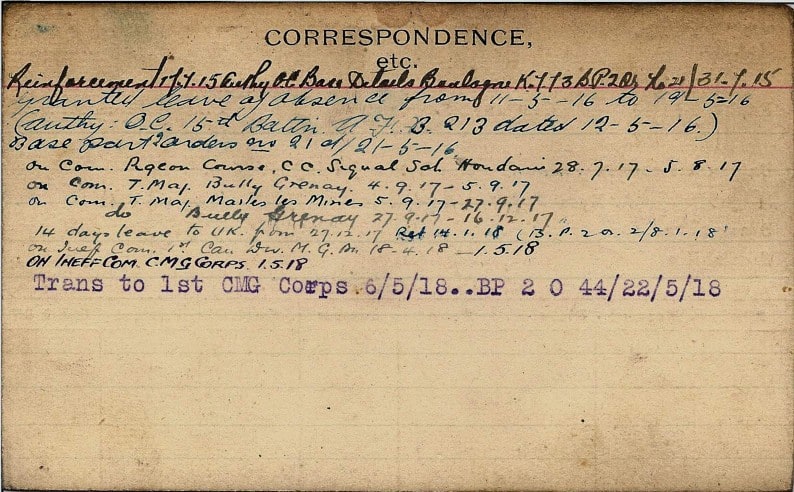 CORRESPONDENCE,
etc.
Reinforcement 17.7.15 Authy O.C. Base Details Boulogne K.773 B.P. 2 Ors 31.7.15
granted leave of absence from 11-5-16 to 19-5-16
(authy: O.C. 15th Battn. A.F. B. 213 dated 12-5-16.)
Base part 2 orders no 21 d/ 21-5-16
on Com. Pigeon Course, C.C. Signal Sch. Houdain 28.7.17 - 5.8.17
on Com. T. Maj. Bully Grenay. 4.9.17 - 5.9.17
on Com. T. Maj. les Mines 5.9.17 - 27.9.17
do Bully Grenay 27.9.17 - 16.12.17
14 days leave to UK. from 27.12.17 Ret 14.1.18 (B.P. 2 O. 2/8.1.18
on Com. 1st Can Div. M.G. Bn 18.4.18 - 1.5.18
ON INEFF COM. C.M.G CORPS. 1.5.18
Trans to 1st CMG Corps 6/5/18..BP 2 O 44/22/5/18